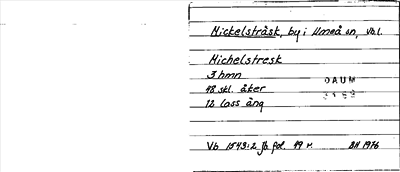 Mickelsträsk, by i Umeå sn, Vb.l.
Michelstresk
3 hmn
DAUM
48 skl. åker
3153
12 lass äng
Vb 1543:2 Jb fol. 49 r. BH 1976